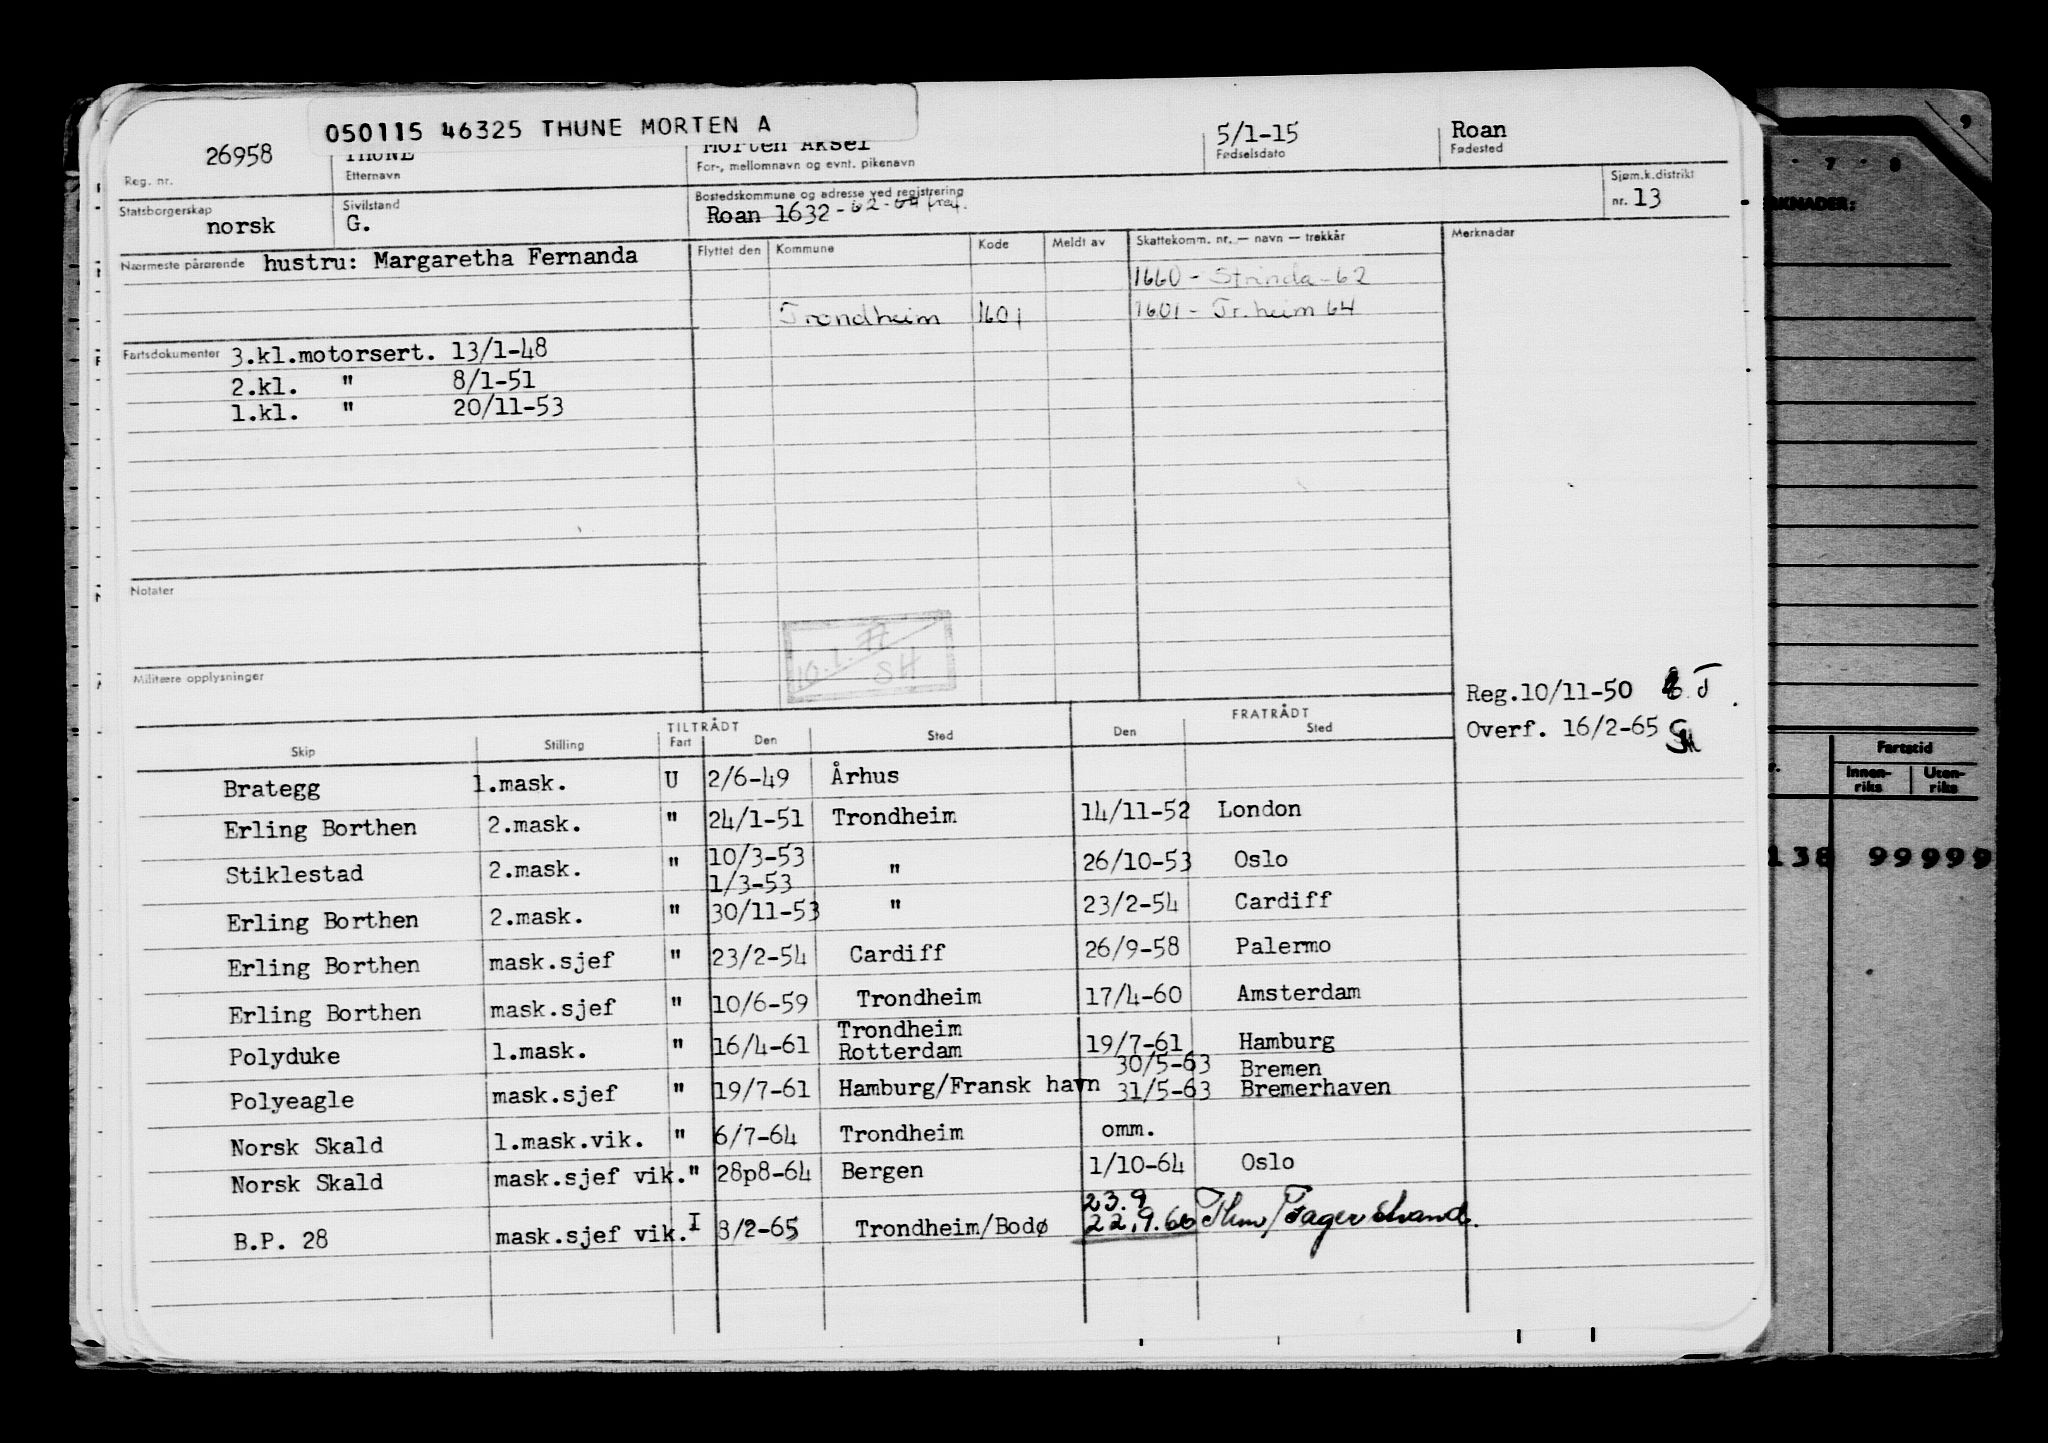 050115 46325 THUNE MORTEN A
26958 THUNE Morten Aksel 5/1-15 Roan
Reg. nr. Etternavn For-, mellomnavn og evnt. pikenavn Fødselsdato Fødested
Statsborgerskap Sivilstand Bostedskommune og adresse ved registrering Sjøm.k.distrikt
norsk G. Roan 1632 -62-64 nr. 13
Nærmeste pårørende hustru: Margaretha Fernanda Flyttet den Kommune Kode Meldt av Skattekomm. nr. — navn — trekkår Merknader
1660 - Strinda - 62
Trondheim 1601 1601 - Tr.heim 64
Fartsdokumenter 3.kl.motorsert. 13/1-48
2.kl. " 8/1-51
1.kl. " 20/11-53
Notater
10.1.77
SH
Militære opplysninger
Reg.10/11-50
Overf. 16/2-65
TILTRÅDT FRATRÅDT
Skip Stilling Fart Den Sted Den Sted
Brategg 1.mask. U 2/6-49 Århus
Erling Borthen 2.mask. " 24/1-51 Trondheim 14/11-52 London
Stiklestad 2.mask. " 10/3-53 " 26/10-53 Oslo
1/3-53
Erling Borthen 2.mask. " 30/11-53 " 23/2-54 Cardiff
Erling Borthen mask.sjef " 23/2-54 Cardiff 26/9-58 Palermo
Erling Borthen mask.sjef " 10/6-59 Trondheim 17/4-60 Amsterdam
Trondheim
Polyduke 1.mask. " 16/4-61 Rotterdam 19/7-61 Hamburg
30/5-63 Bremen
Polyeagle mask.sjef " 19/7-61 Hamburg/Fransk havn 31/5-63 Bremerhaven
Norsk Skald 1.mask.vik. " 6/7-64 Trondheim omm.
Norsk Skald mask.sjef vik. " 28p8-64 Bergen 1/10-64 Oslo
23.9
B.P. 28 mask.sjef vik. I 8/2-65 Trondheim/Bodø 22.9.66 /Fagerstrand.
9
7 8
KNADER:
Fartstid
Innen-riks Uten-riks
138 99999